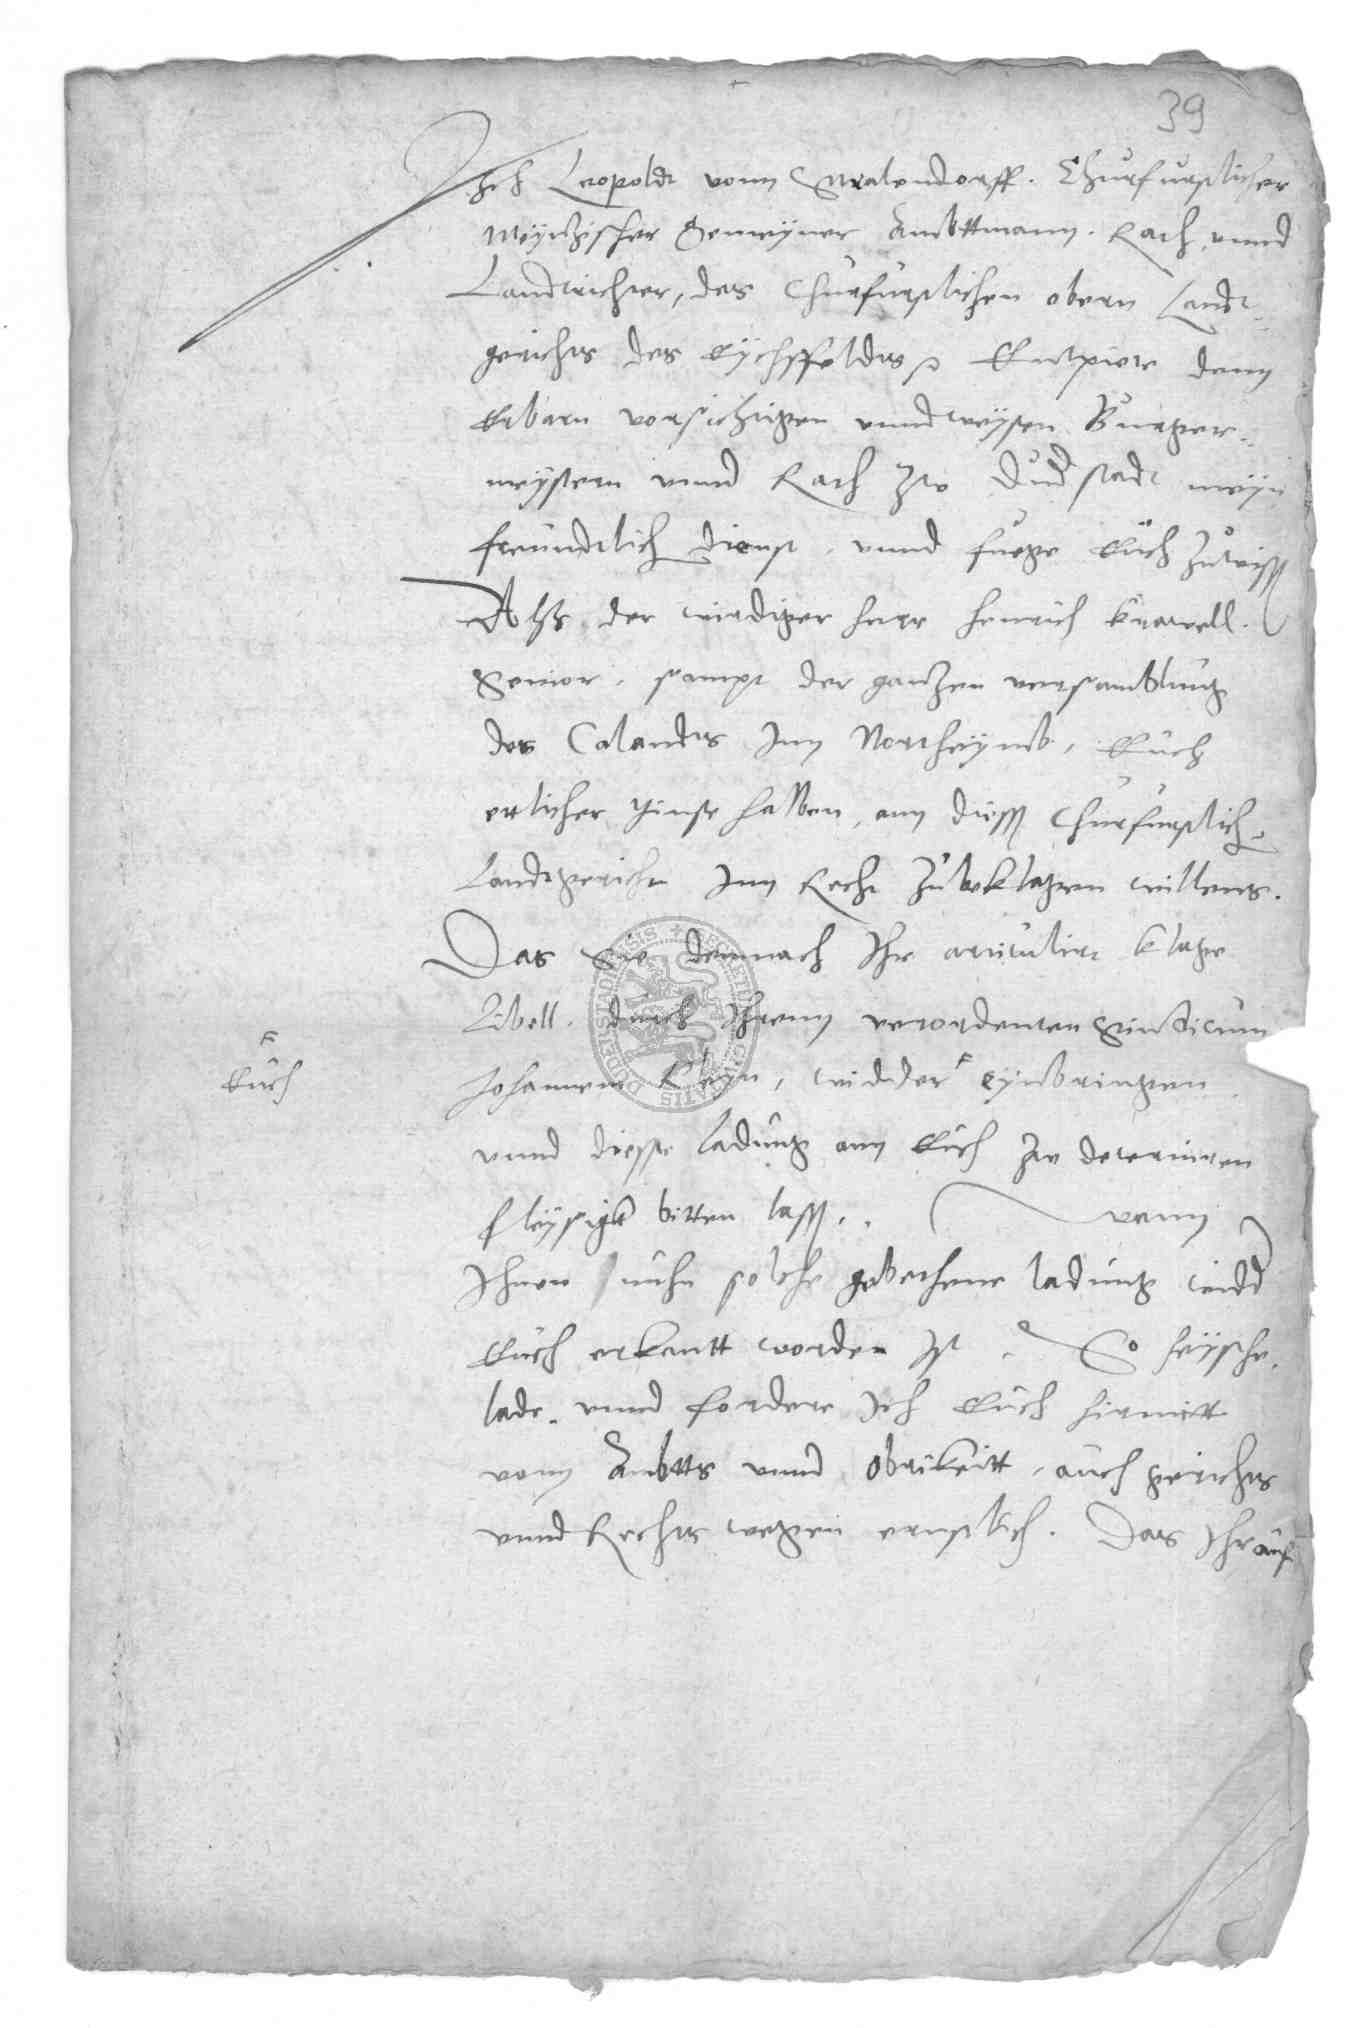 39
Ich Leopoldt vonn Stralendorff. Churfurstlicher
Meyntzischer Gemeyner Ambttmann. Rath, vnnd
Landtrichter, des Churfurstlichen obern Landt¬
gerichts des Eychssfeldts Entpiete denn
Erbarn vorsichtigen vnnd weysen Burger¬
meystern vnnd Rath zw Dudstadt meyn
freundtlich dienst, vnnd fuege Euch zuwissen
Alss der wirdiger herr Henrich
Senior, sampt der gantzen versamblung
des Calandts Inn Northeymb, Euch
etlicher Zinse halben, ann diessem Churfurstlichen
Landtgericht Inn Recht zubeklagen willens.
Das Sie demnach Ihr articulirt klage
Libell, durch Ihrenn verordenten Sindicum
Johannem Kleyn, widder eynbringen
Euch
vnnd diesse ladung ann Euch zw decerniren
fleysigk bitten lassen. wenn
Ihnen nuhn solche gebethene ladung widd
Euch erkantt worden Ist. So heysche,
lade, vnnd fordere Ich Euch hirmitt
vonn Ambtts vnnd obrikeitt, auch gerichts
vnnd Rechts wegen ernstlich. Das Ihr auf
SECRETUM CIVITATIS DUDERSTADENSIS